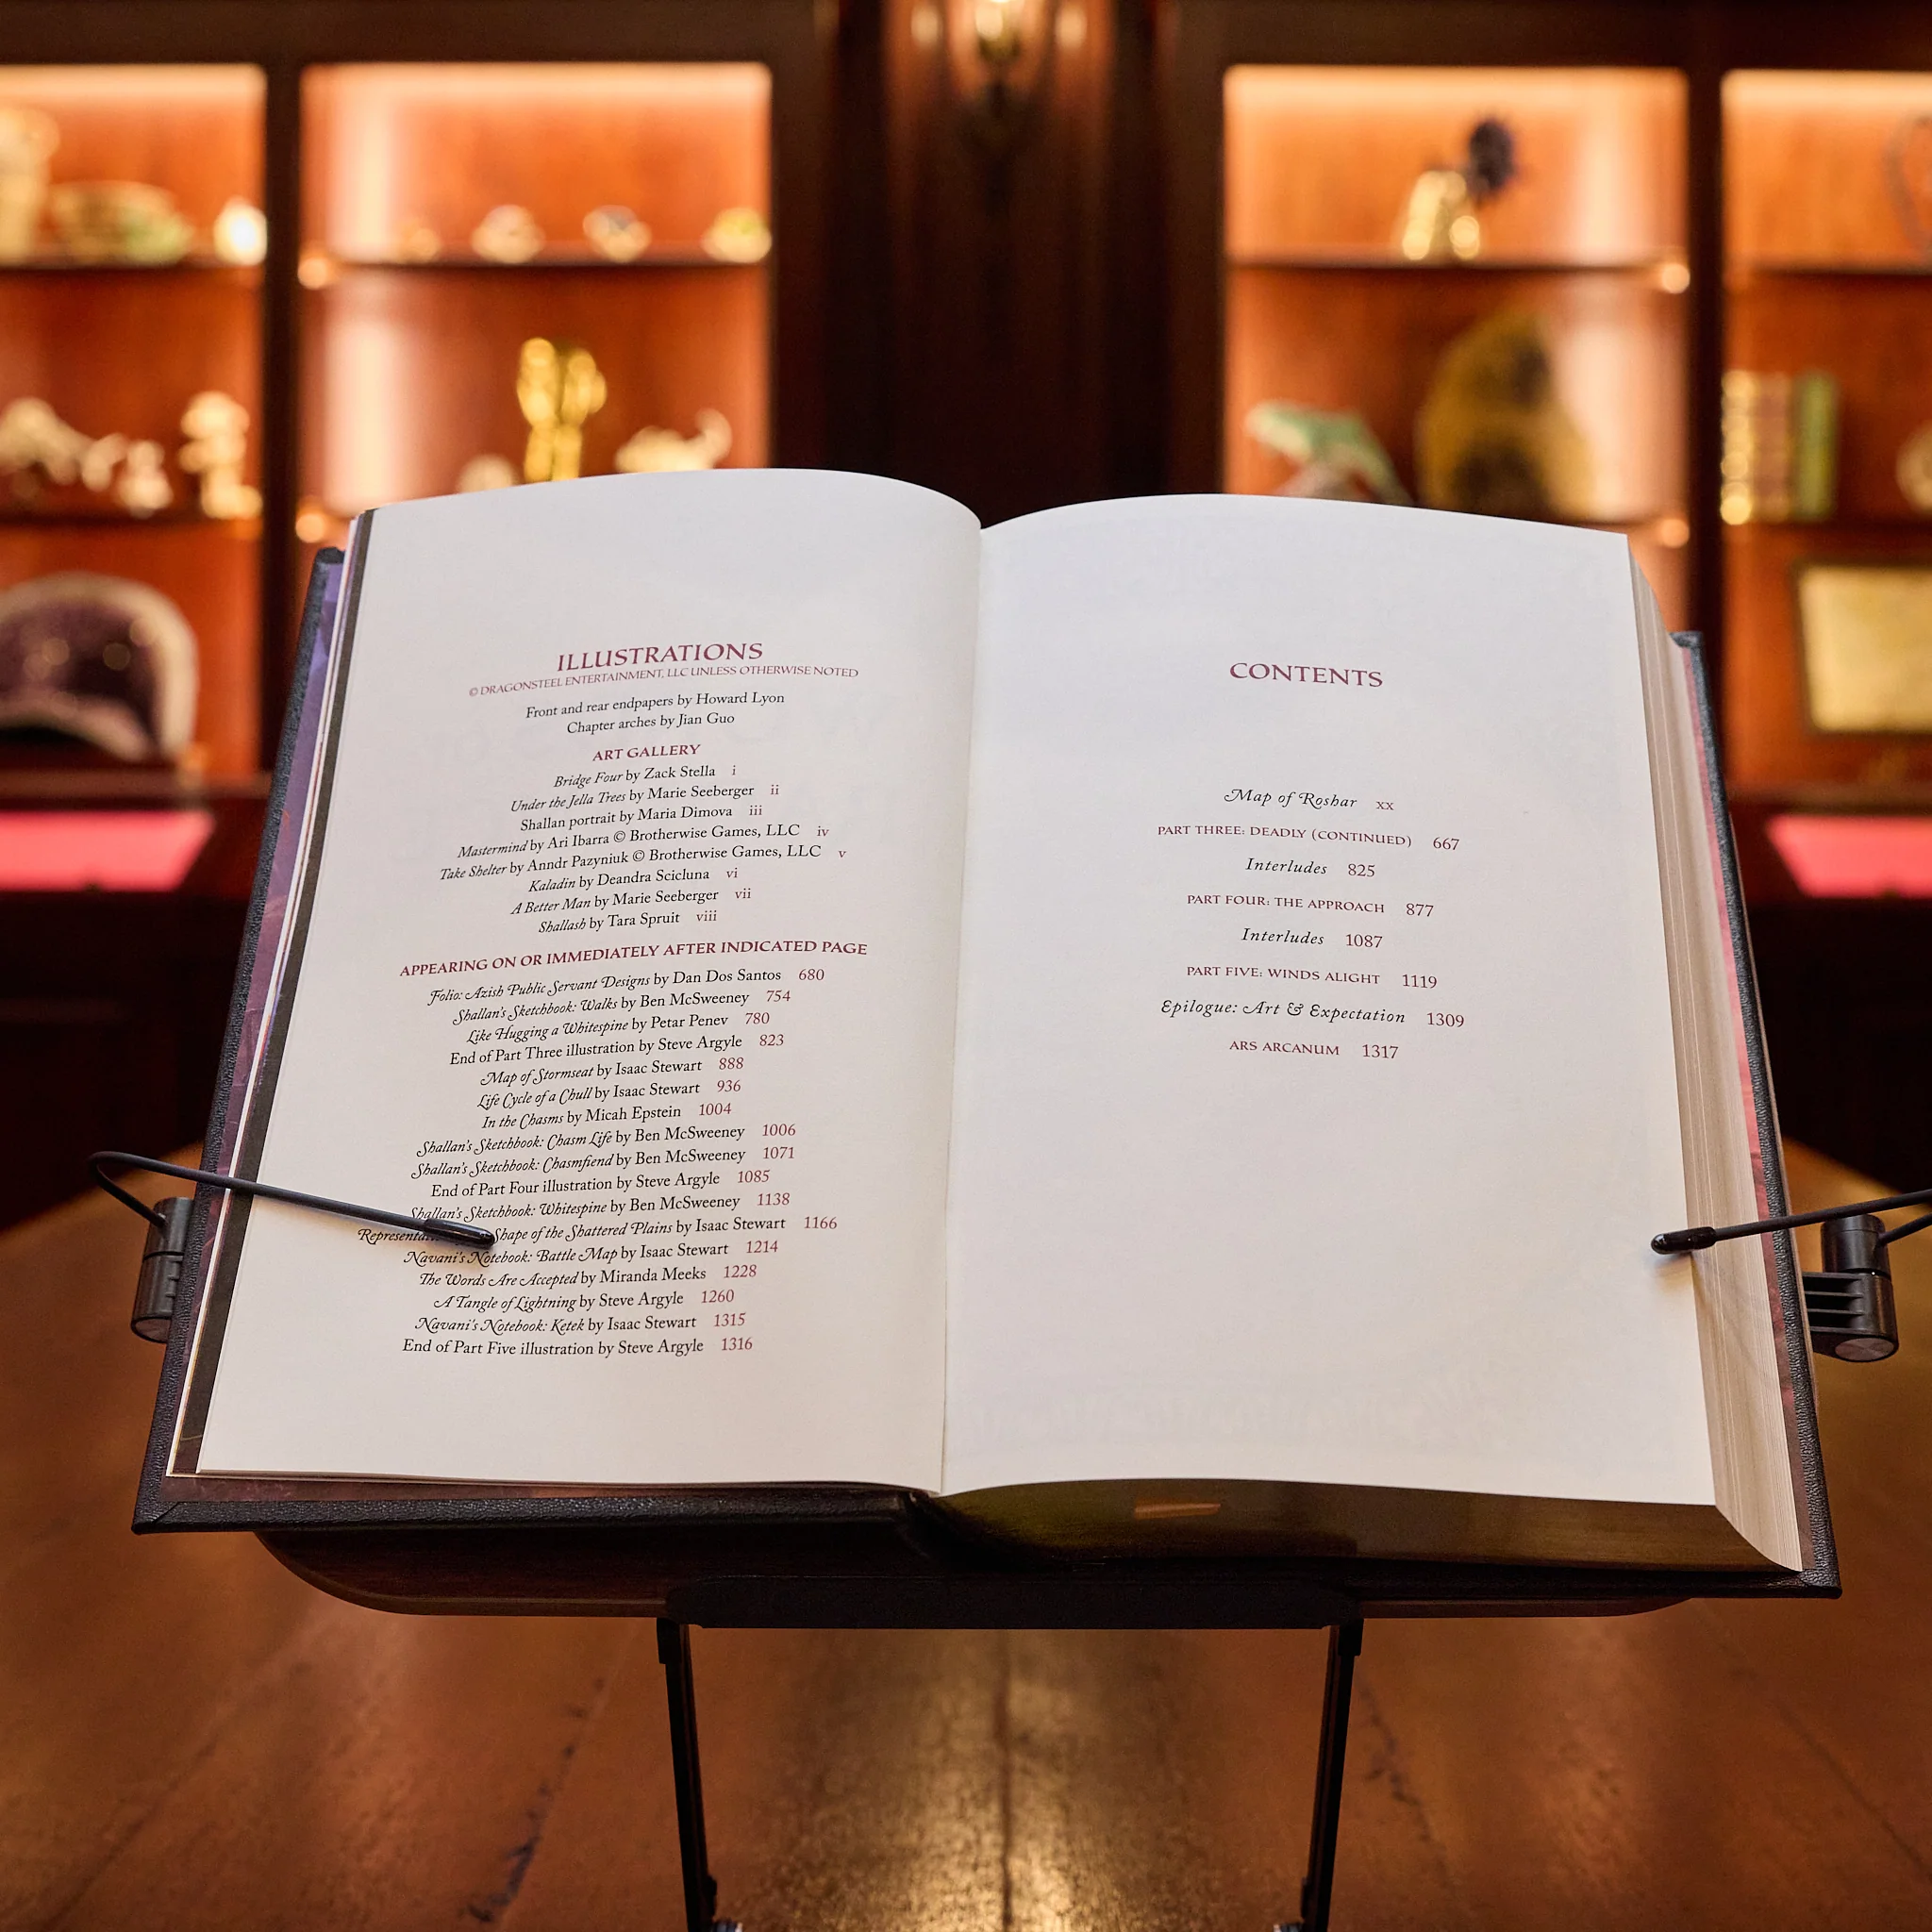 ILLUSTRATIONS
© DRAGONSTEEL ENTERTAINMENT, LLC UNLESS OTHERWISE NOTED
Front and rear endpapers by Howard Lyon
Chapter arches by Jian Guo
ART GALLERY
Bridge Four by Zack Stella i
Under the Jella Trees by Marie Seeberger ii
Shallan portrait by Maria Dimova iii
Mastermind by Ari Ibarra © Brotherwise Games, LLC iv
Take Shelter by Anndr Pazyniuk © Brotherwise Games, LLC v
Kaladin by Deandra Scicluna vi
A Better Man by Marie Seeberger vii
Shallash by Tara Spruit viii
APPEARING ON OR IMMEDIATELY AFTER INDICATED PAGE
Folio: Azish Public Servant Designs by Dan Dos Santos 680
Shallan's Sketchbook: Walks by Ben McSweeney 754
Like Hugging a Whitespine by Petar Penev 780
End of Part Three illustration by Steve Argyle 823
Map of Stormseat by Isaac Stewart 888
Life Cycle of a Chull by Isaac Stewart 936
In the Chasms by Micah Epstein 1004
Shallan's Sketchbook: Chasm Life by Ben McSweeney 1006
Shallan's Sketchbook: Chasmfiend by Ben McSweeney 1071
End of Part Four illustration by Steve Argyle 1085
Shallan's Sketchbook: Whitespine by Ben McSweeney 1138
Shape of the Shattered Plains by Isaac Stewart 1166
Navani's Notebook: Battle Map by Isaac Stewart 1214
The Words Are Accepted by Miranda Meeks 1228
A Tangle of Lightning by Steve Argyle 1260
Navani's Notebook: Ketek by Isaac Stewart 1315
End of Part Five illustration by Steve Argyle 1316
CONTENTS
Map of Roshar xx
PART THREE: DEADLY (CONTINUED) 667
Interludes 825
PART FOUR: THE APPROACH 877
Interludes 1087
PART FIVE: WINDS ALIGHT 1119
Epilogue: Art & Expectation 1309
ARS ARCANUM 1317